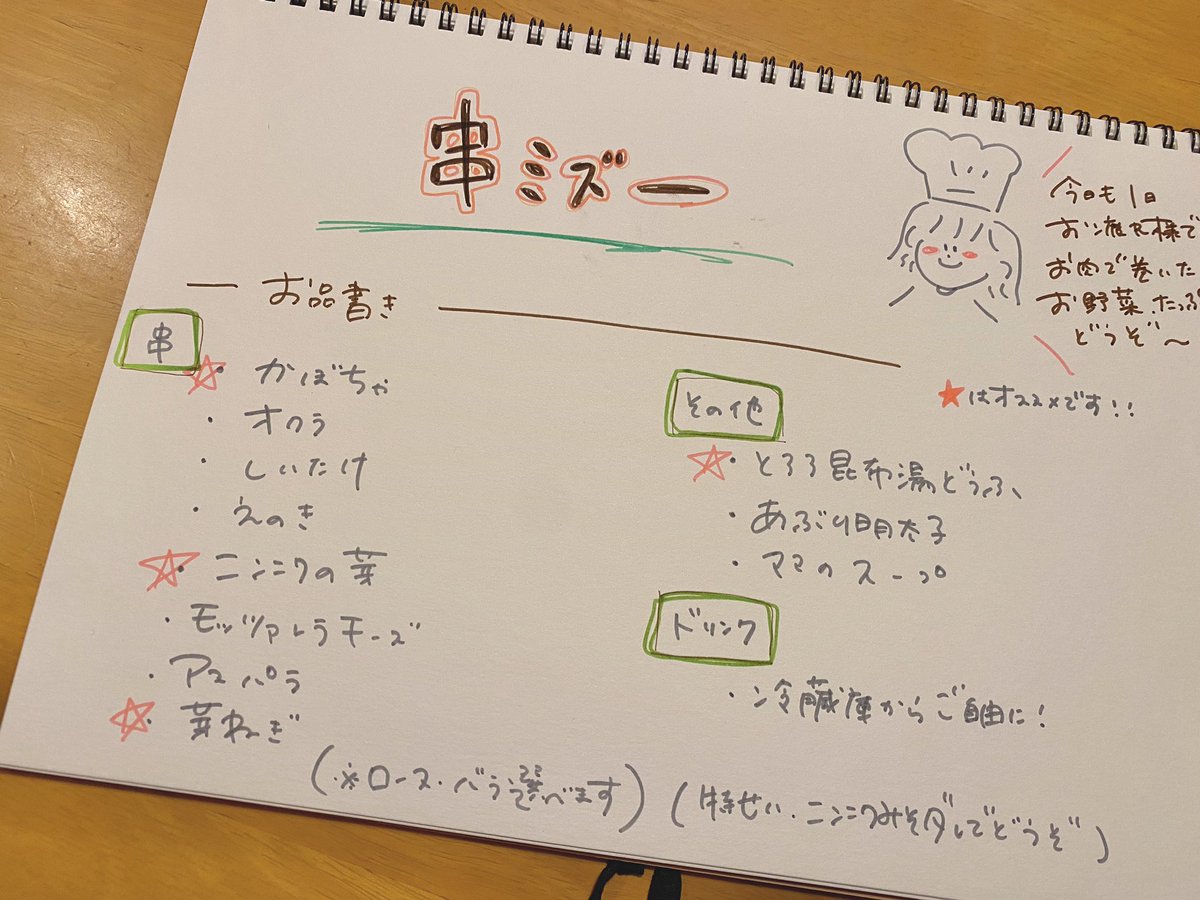 串ミズー
今日も1日
お疲れ様で
お肉で巻いた
お野菜、たっぷ
どうぞ〜
お品書き
★はオススメです!!
串
☆・かぼちゃ
・オクラ
・しいたけ
・えのき
☆・ニンニクの芽
・モッツァレラチーズ
・アスパラ
☆・芽ねぎ
(※ロース・バラ選べます)
その他
☆・とろろ昆布湯どうふ
・あぶり明太子
・ママのスープ
ドリンク
・冷蔵庫からご自由に!
(特せい・ニンニクみそダレでどうぞ)